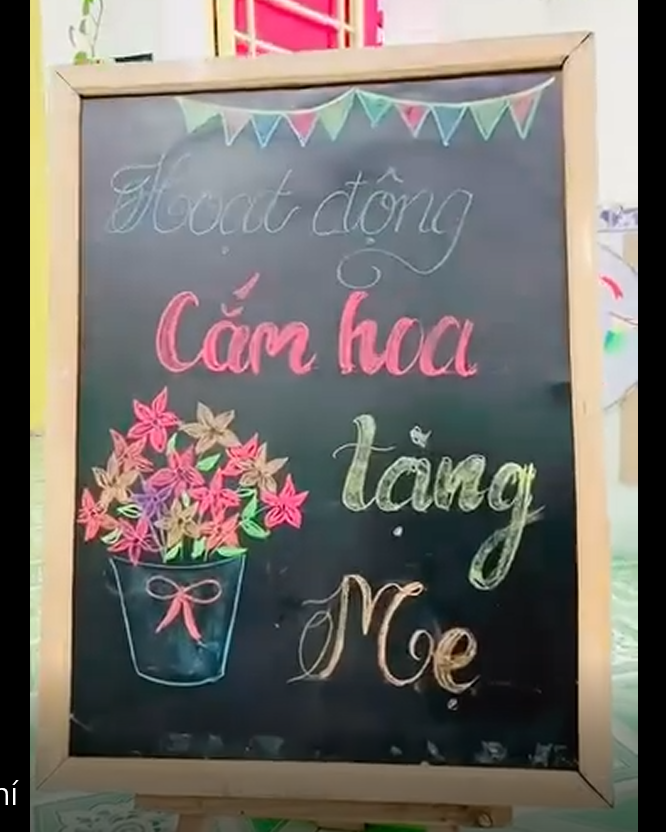 Hoạt động
Cắm hoa
tặng
Mẹ